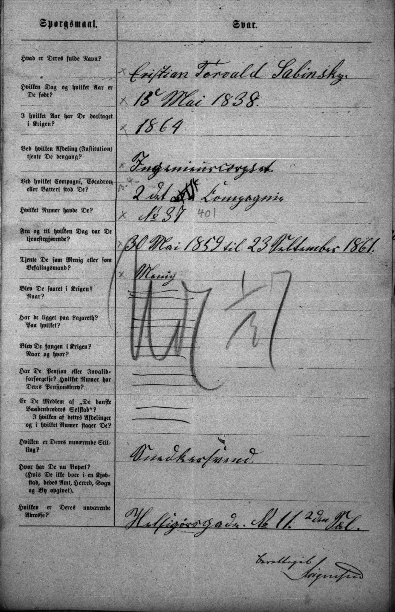 Spørgsmaal. Svar.
Hvad er Deres fulde Navn?
Cristian Torvald Sabinsky.
Hvilken Dag og hvilket Aar er
De født?
15 Mai 1838.
I hvilket Aar har De deeltaget
i Krigen?
1864
Ved hvilken Afdeling (Institution)
tjente De dengang?
Ingenieurcorpset
Ved hvilket Compagni, Escadron
eller Batteri stod De?
2det Compagnie
Hvilket Numer havde De?
No 37 401
Fra og til hvilken Dag var De
tjenestegjørende?
30 Mai 1859 til 23 September 1861.
Tjente De som Menig eller som
Befalingsmand?
Menig
Blev De saaret i Krigen?
Naar?
Har De ligget paa Lazareth?
Paa hvilket?
Blev De fangen i Krigen?
Naar og hvor?
Har De Pension eller Invalid-
forsørgelse? Hvilket Numer har
Deres Pensionsbrev?
Er De Medlem af „De danske
Vaabenbrødres Selskab“?
I hvilken af dettes Afdelinger
og i hvilket Numer staaer De?
Hvilken er Deres nuværende Stil-
ling?
Snedkersvend.
Hvor har De nu Bopæl?
(Hvis De ikke boer i en Kjøb-
stad, da Amt, Herred, Sogn
og By opgivet).
Hvilken er Deres nuværende
Adresse?
Helsigørsgade. No 11. 2den Sal.